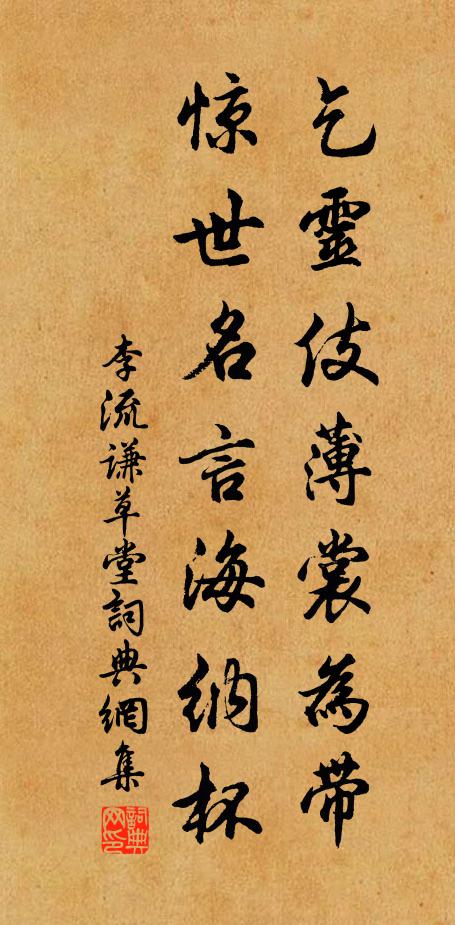 乞靈伎薄裳為帶
惊世名言海納杯
李流謙草堂詞典網集
詞典网印